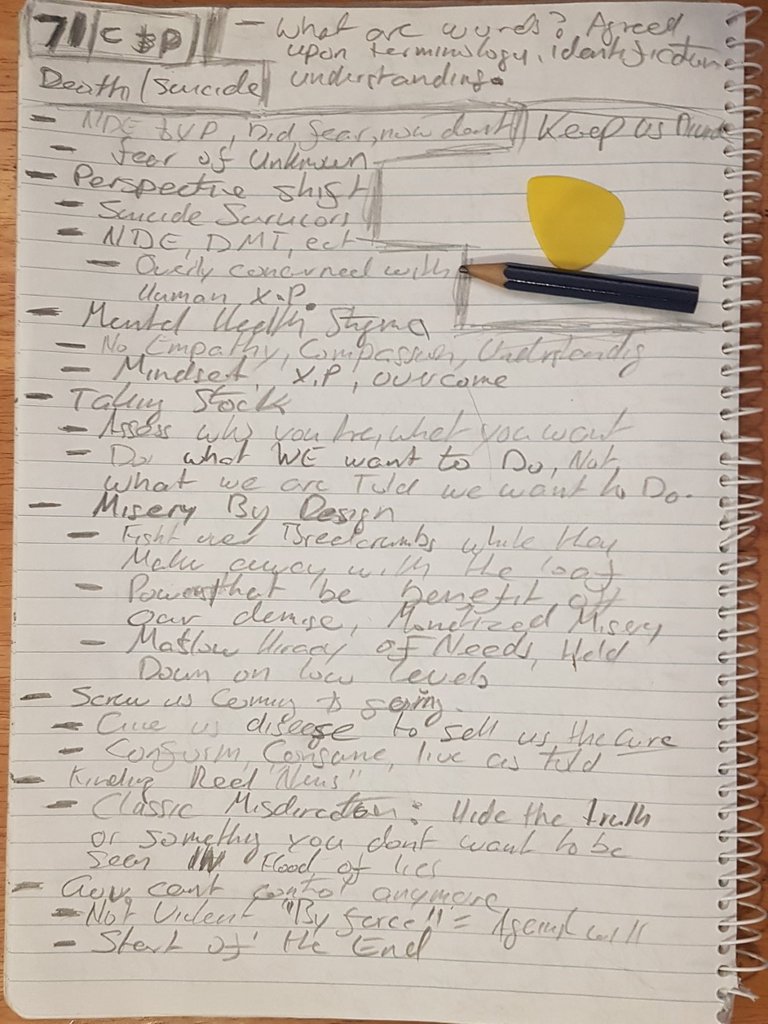 71 C & P
- What are words? Agreed
upon terminology, identification
understanding.
Death/Suicide
- NDE exp, Did fear, now dont
Keep us
- fear of Unknown
- Perspective shift
- Suicide Survivors
- NDE, DMT, ect
- Overly concerned with
Human X.P.
- Mental Health Stigma
- No Empathy, Compassion, Understandig
- Mindset, X.P, outcome
- Taking Stock
- Assess who you are, what you want
- Do what WE want to Do, Not
what we are Told we want to Do.
- Misery By Design
- Fight over Breadcrumbs while they
Make away with the loaf
- Powersthat be benefit off
our demise, Monetized Misery
- Maslow Hirady of Needs, Held
Down on low levels
- Screw us Coming & going.
- Give us disease to sell us the Cure
- Conform, Consume, live as told
- Reel "News"
- Classic Misdirection: Hide the truth
or somethig you dont want to be
seen IN Flood of lies
- Gov cant control anymore
- Not Violent "By force" = Against will
- Start of the End